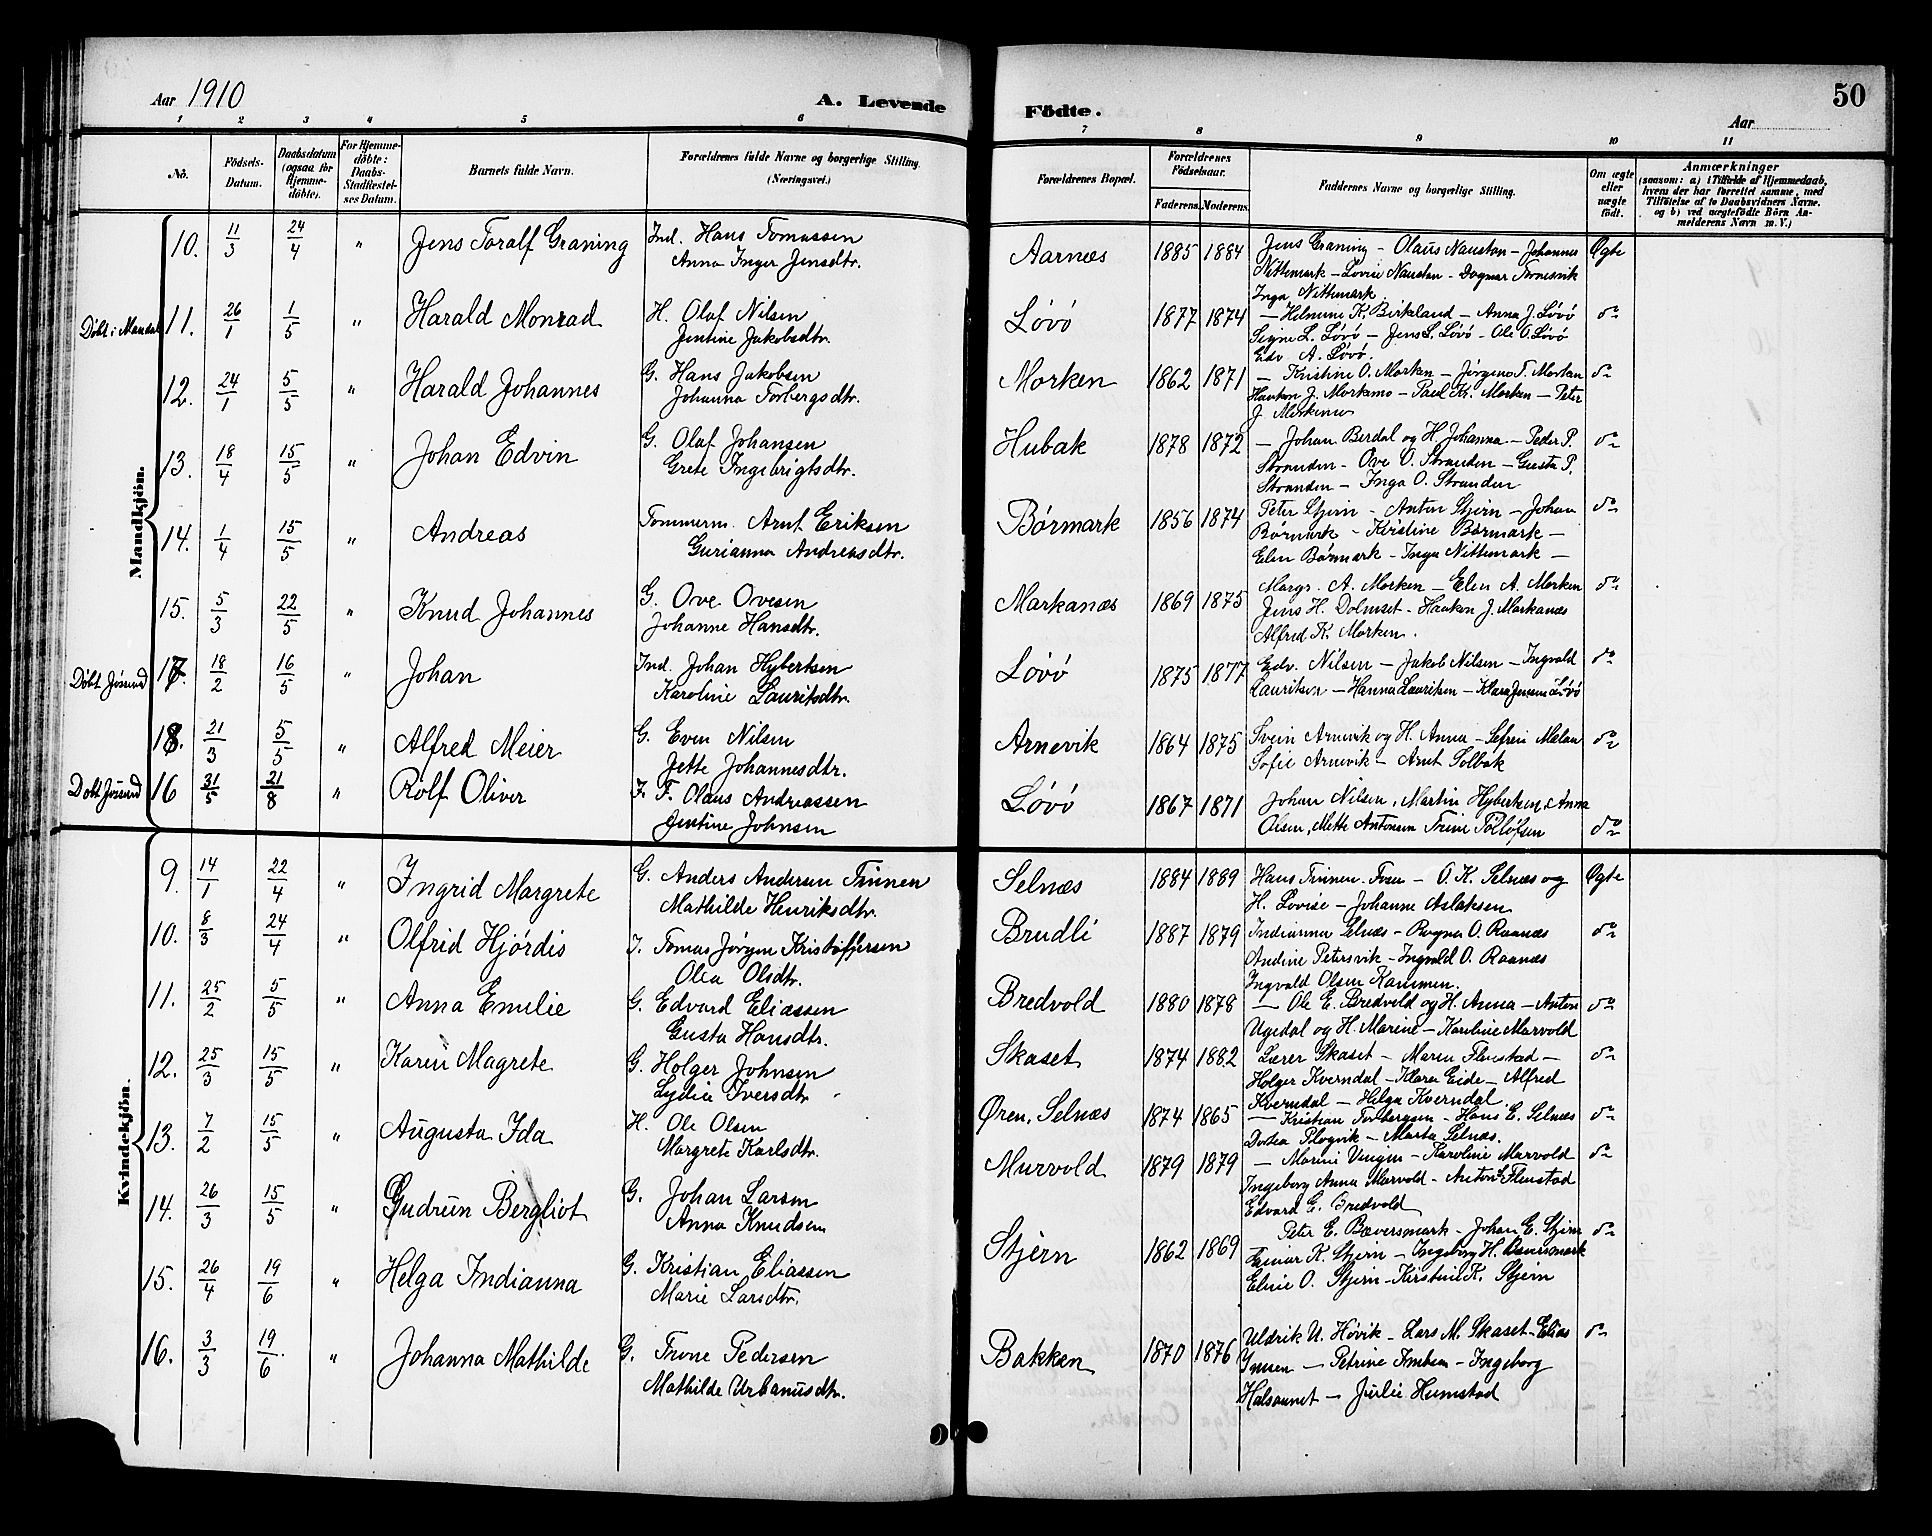 Aar 1910
A. Levende
Födte.
Aar
50
1 2 3 4 5 6 7 8 9 10 11
No.
Födsels-Datum.
Daabsdatum (ogsaa for Hjemme-döbte).
For Hjemme-döbte: Daabs-Stadfæstel-ses Datum.
Barnets fulde Navn.
Forældrenes fulde Navne og borgerlige Stilling.
(Næringsvei.)
Forældrenes Bopæl.
Forældrenes Födselsaar.
Faderens. Moderens.
Faddernes Navne og borgerlige Stilling.
Om ægte eller uægte födt.
Anmærkninger
(saasom: a) i Tilfælde af Hjemmedaab, hvem der har forrettet samme, med Tilföielse af to Daabsvidners Navne. og b) ved uægtefödte Börn An-melderens Navn m. V.)
Mandkjön.
10. 11/3 24/4 " Jens Toralf Graning Ind. Hans Tomassen Aarnæs 1885 1884 Jens Graning - Olaus Naustan - Johannes Ægte
Anna Inger Jensdtr. Nittemark - Lovise Naustan - Dagmar
Inga Nittemark
Døbt i Mandal 11. 26/1 1/5 " Harald Monrad H. Olaf Nilsen Løvø 1877 1874 - Helmine K. Birkland - Anna J. Løvø do
Jentine Jakobsdtr. Signe L. Løvø - Jens L. Løvø - Ole O. Løvø
Edv. A. Løvø.
12. 24/1 5/5 " Harald Johannes G. Hans Jakobsen Morken 1862 1871 - Kristine O. Morken - Jørgine T. Morken do
Johanna Torbergsdtr. Haakon J. Morkemo - Paul Kr. Morken - Peter
J. Morkemo
13. 18/4 15/5 " Johan Edvin G. Olaf Johansen Hubak 1878 1872 - Johan Berdal og H. Johanna - Peder P. do
Grete Ingebrigtsdtr. Stranden - Ove O. Stranden - Gusta P.
Stranden - Inga O. Stranden
14. 1/4 15/5 " Andreas Tømmerm. Arnt Eriksen Børmark 1856 1874 Peter Stjern - Anton Stjern - Johan do
Gurianna Andreasdtr. Børmark - Kirstine Børmark -
Elen Børmark - Inga Nittemark -
15. 5/3 22/5 " Knud Johannes G. Ove Ovesen Markanæs 1869 1875 Margr. A. Morken - Elen A. Morken do
Johanne Hansdtr. Jens H. Dolmset - Haaken J. Markanæs
Alfred K. Morken.
Døbt Jøsund 17. 18/2 16/5 " Johan Ind. Johan Hybertsen Løvø 1875 1877 Edv. Nilsen - Jakob Nilsen - Ingvald do
Karoline Lauritsdtr. Lauritsen - Hanna Lauritsen - Klara Jensen Løvø
18. 21/3 5/5 " Alfred Meier G. Even Nilsen Arnevik 1864 1875 Svein Arnevik og H. Anna - Sefren Mælan do
Jette Johannesdtr. Sofie Arnevik - Arnt Solbak
Døbt Jøsund 16 31/5 21/8 " Rolf Oliver F. Olaus Andreassen Løvø 1867 1871 Johan Nilsen, Martin Hybertsen, Anna
Jentine Johnsen Olsen, Mette Antonsen Trine Tollofsen do
Kvindekjön.
9. 14/1 22/4 " Ingrid Margrete G. Anders Andersen Tinnen Selnæs 1884 1889 Hans Tinnen - O. K. Selnæs og Ægte
Mathilde Henriksdtr. H. Lovise - Johanne Aslaksen
10. 8/3 24/4 " Olfrid Hjørdis I. Tomas Jørgen Kristoffersen Brudli 1887 1879 Indianna Selnæs - Ragna O. Raanæs do
Olea Olsdtr. Andine Petersvik - Ingvald O. Raanæs
Ingvald Olsen Kammen.
11. 25/2 5/5 " Anna Emelie G. Edvard Eliassen Bredvold 1880 1878 - Ole E. Bredvold og H. Anna - Anton do
Gusta Hansdtr. Ugedal og H. Marine - Karoline Marvold
12. 25/3 15/5 " Karen Magrete G. Holger Johnsen Skaset 1874 1882 Lærer Skaset - Maren Flenstad - do
Lydia Iversdtr. Holger Kverndal - Klara Eide - Alfred
Kverndal - Helga Kverndal.
13. 7/2 15/5 " Augusta Ida H. Ole Olsen Øren, Selnæs 1874 1865 - Kristian Torbergsen - Hans E. Selnæs do
Margrete Karlsdtr. Dortea Plogvik - Marta Selnæs.
14. 26/3 15/5 " Gudrun Bergliot G. Johan Larsen Murvold 1879 1879 - Marine Vingen - Karoline Marvold do
Anna Knudsen Ingeborg Anna Marvold - Anton Flenstad
Edvard E. Bredvold
15. 26/4 19/6 " Helga Indianna G. Kristian Eliassen Stjern 1862 1869 Peter E. Bæversmark - Johan E. Stjern do
Marie Larsdtr. K. Stjern - Ingeborg H.
Eline O. Stjern - Kirstine K. Stjern
16. 3/3 19/6 " Johanna Mathilde G. Trone Pedersen Bakken 1870 1876 Uldrik U. Høvik - Lars M. Skaset - Elias do
Mathilde Urbanusdtr. - Petrine - Ingeborg
Halsaunet - Julie Humstad